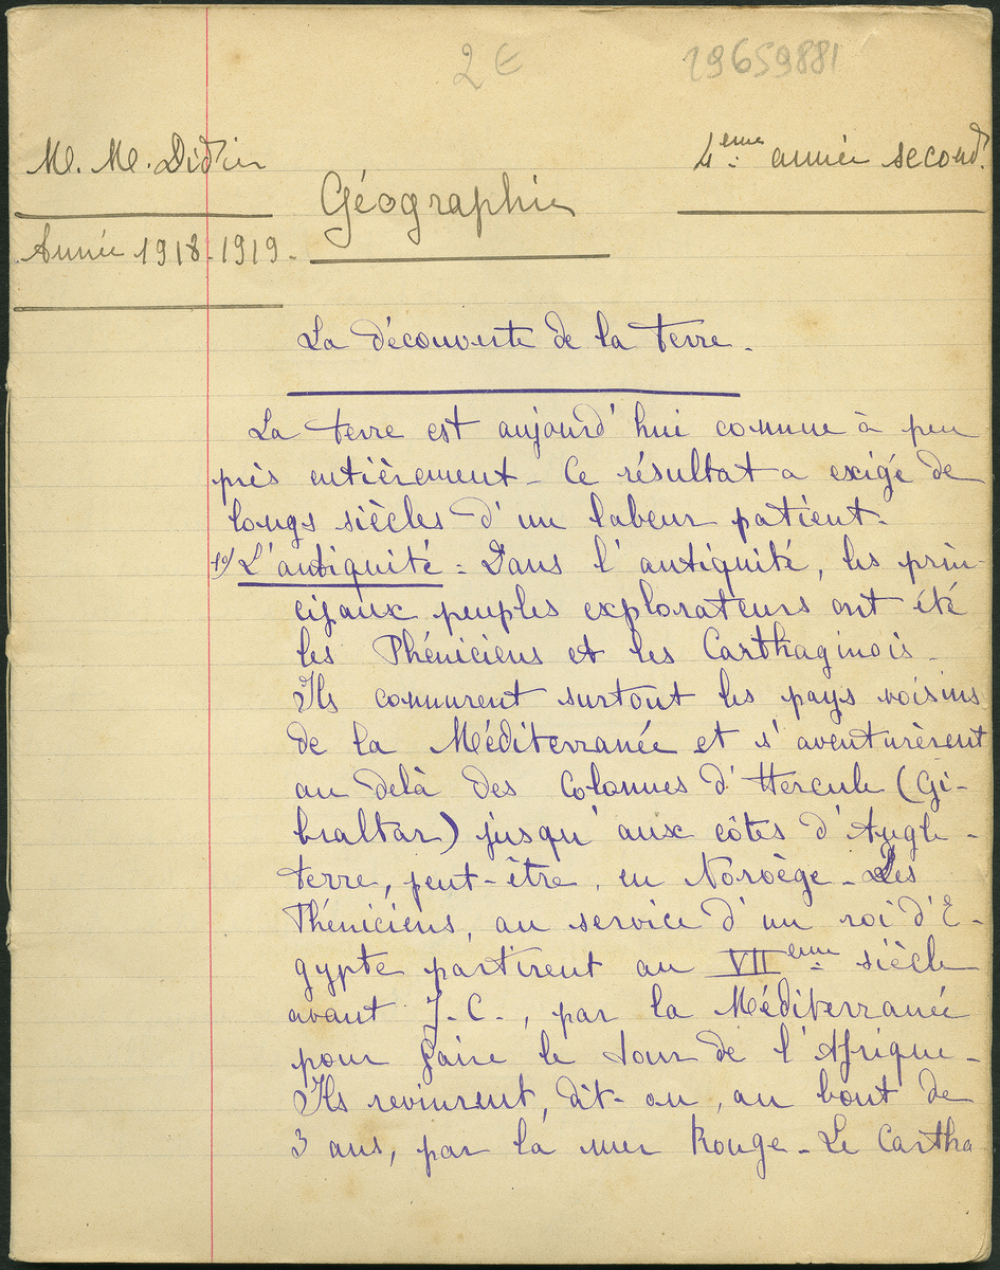 2 €
29659881
M. M. Didier
4ème année second.
Géographie
Année 1918-1919.
La découverte de la Terre.
La terre est aujourd'hui connue à peu
près entièrement - Ce résultat a exigé de
longs siècles d'un labeur patient.
1º/ L'antiquité : Dans l'antiquité, les prin-
cipaux peuples explorateurs ont été
les Phéniciens et les Carthaginois -
Ils connurent surtout les pays voisins
de la Méditerranée et s'aventurèrent
au delà des Colonnes d'Hercule (Gi-
braltar) jusqu'aux côtes d'Angle-
terre, peut-être, en Norvège - Les
Phéniciens, au service d'un roi d'E-
gypte partirent au VIIème siècle
avant J.-C., par la Méditerranée
pour faire le tour de l'Afrique -
Ils revinrent, dit-on, au bout de
3 ans, par la mer Rouge - Le Cartha